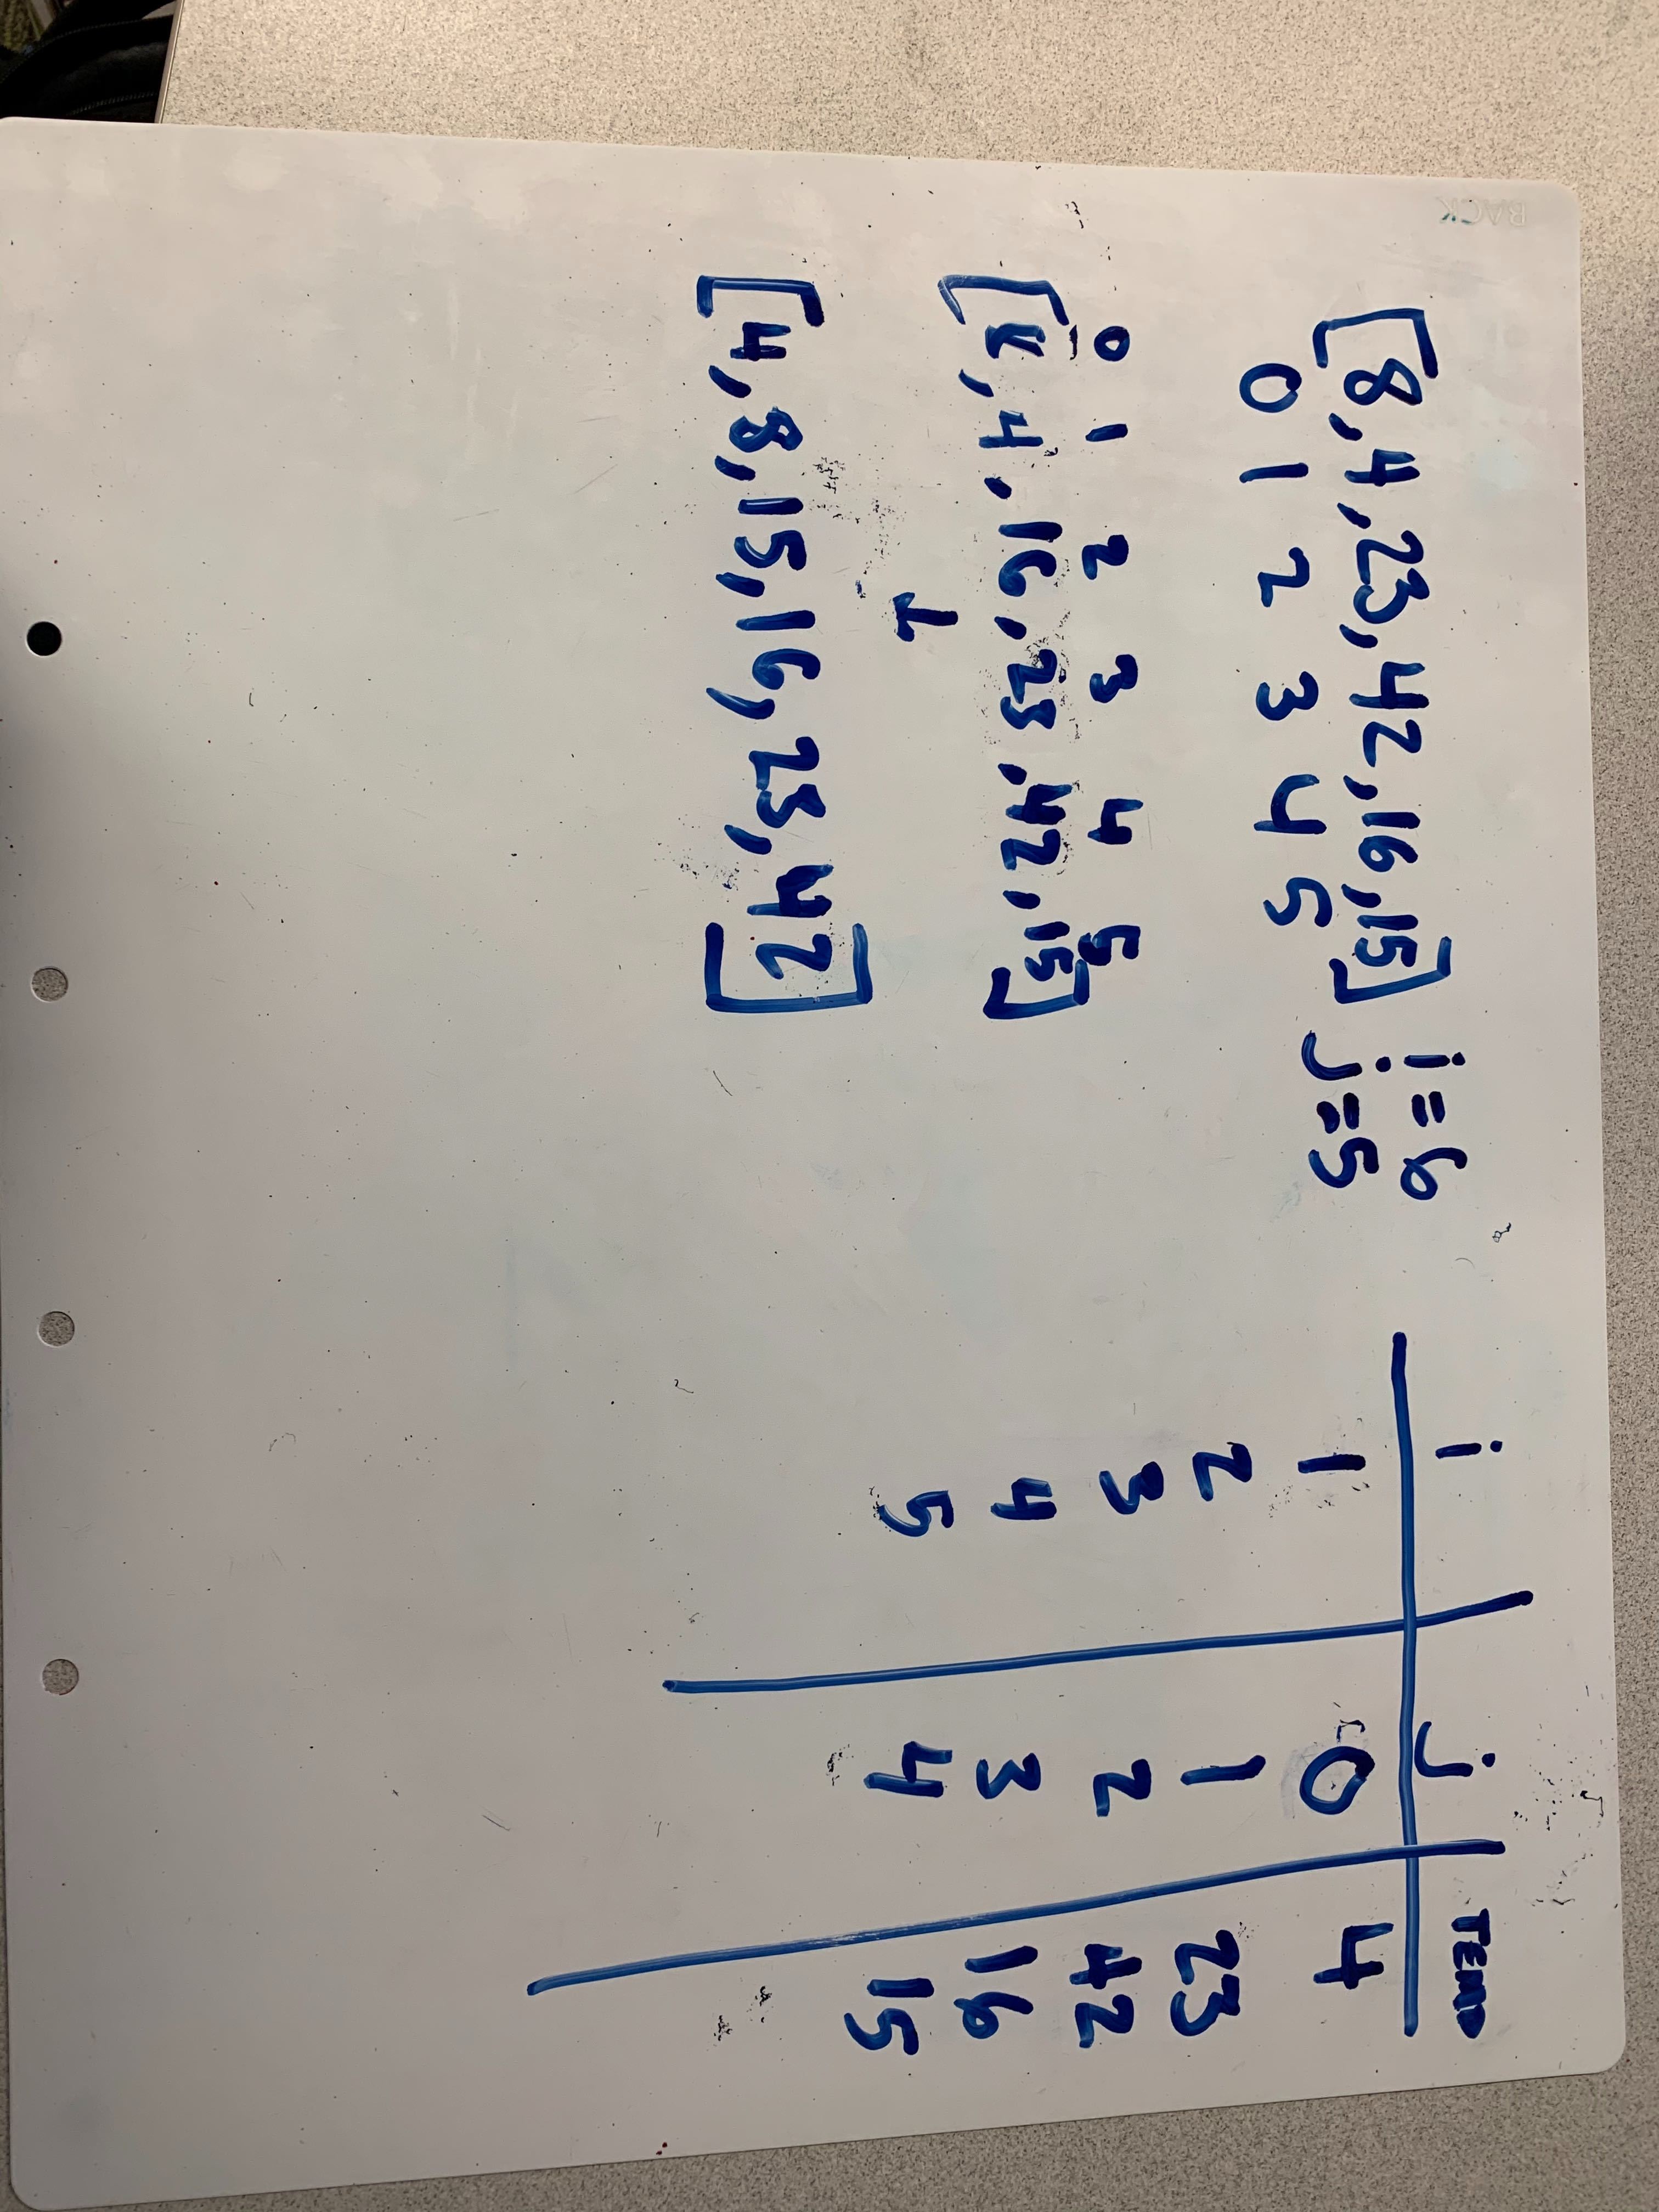 BACK
[8,4,23,42,16,15] i=6
0 1 2 3 4 5 j=5
0 1 2 3 4 5
4,16,23,42,15]
[4,8,15,16,23,42]
i j TEMP
1 0 4
2 1 23
3 2 42
4 3 16
5 4 15